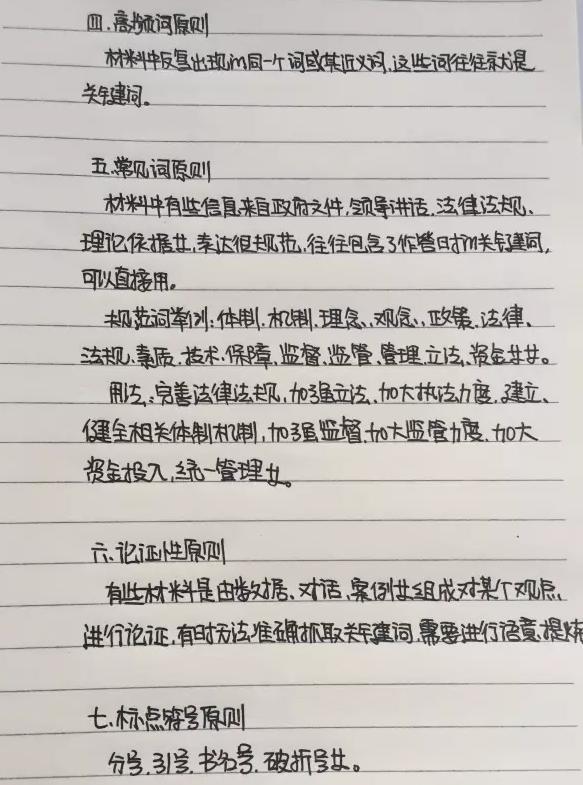 四.高频词原则
材料中反复出现的同一个词或某近义词,这些词往往就是
关键词。
五.常见词原则
材料中有些信息来自政府文件,领导讲话.法律法规、
理论依据等,表达很规范,往往包含了作答时的关键词,
可以直接用。
规范词举例:体制.机制.理念、观念、政策.法律、
法规、素质.技术.保障.监督.监管.管理.立法、资金等等。
用法:完善法律法规,加强立法、加大执法力度.建立、
健全相关体制机制,加强监督.加大监管力度.加大
资金投入,统一管理等。
六.论证性原则
有些材料是由数据、对话、案例等组成对某个观点、
进行论证.有时无法准确抓取关键词.需要进行语意提炼
七、标点符号原则
分号.引号.书名号.破折号等。